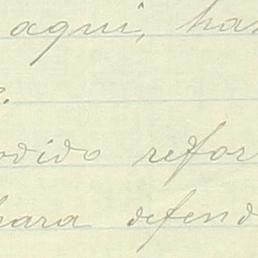 aqui, ha
odido refor
para defend